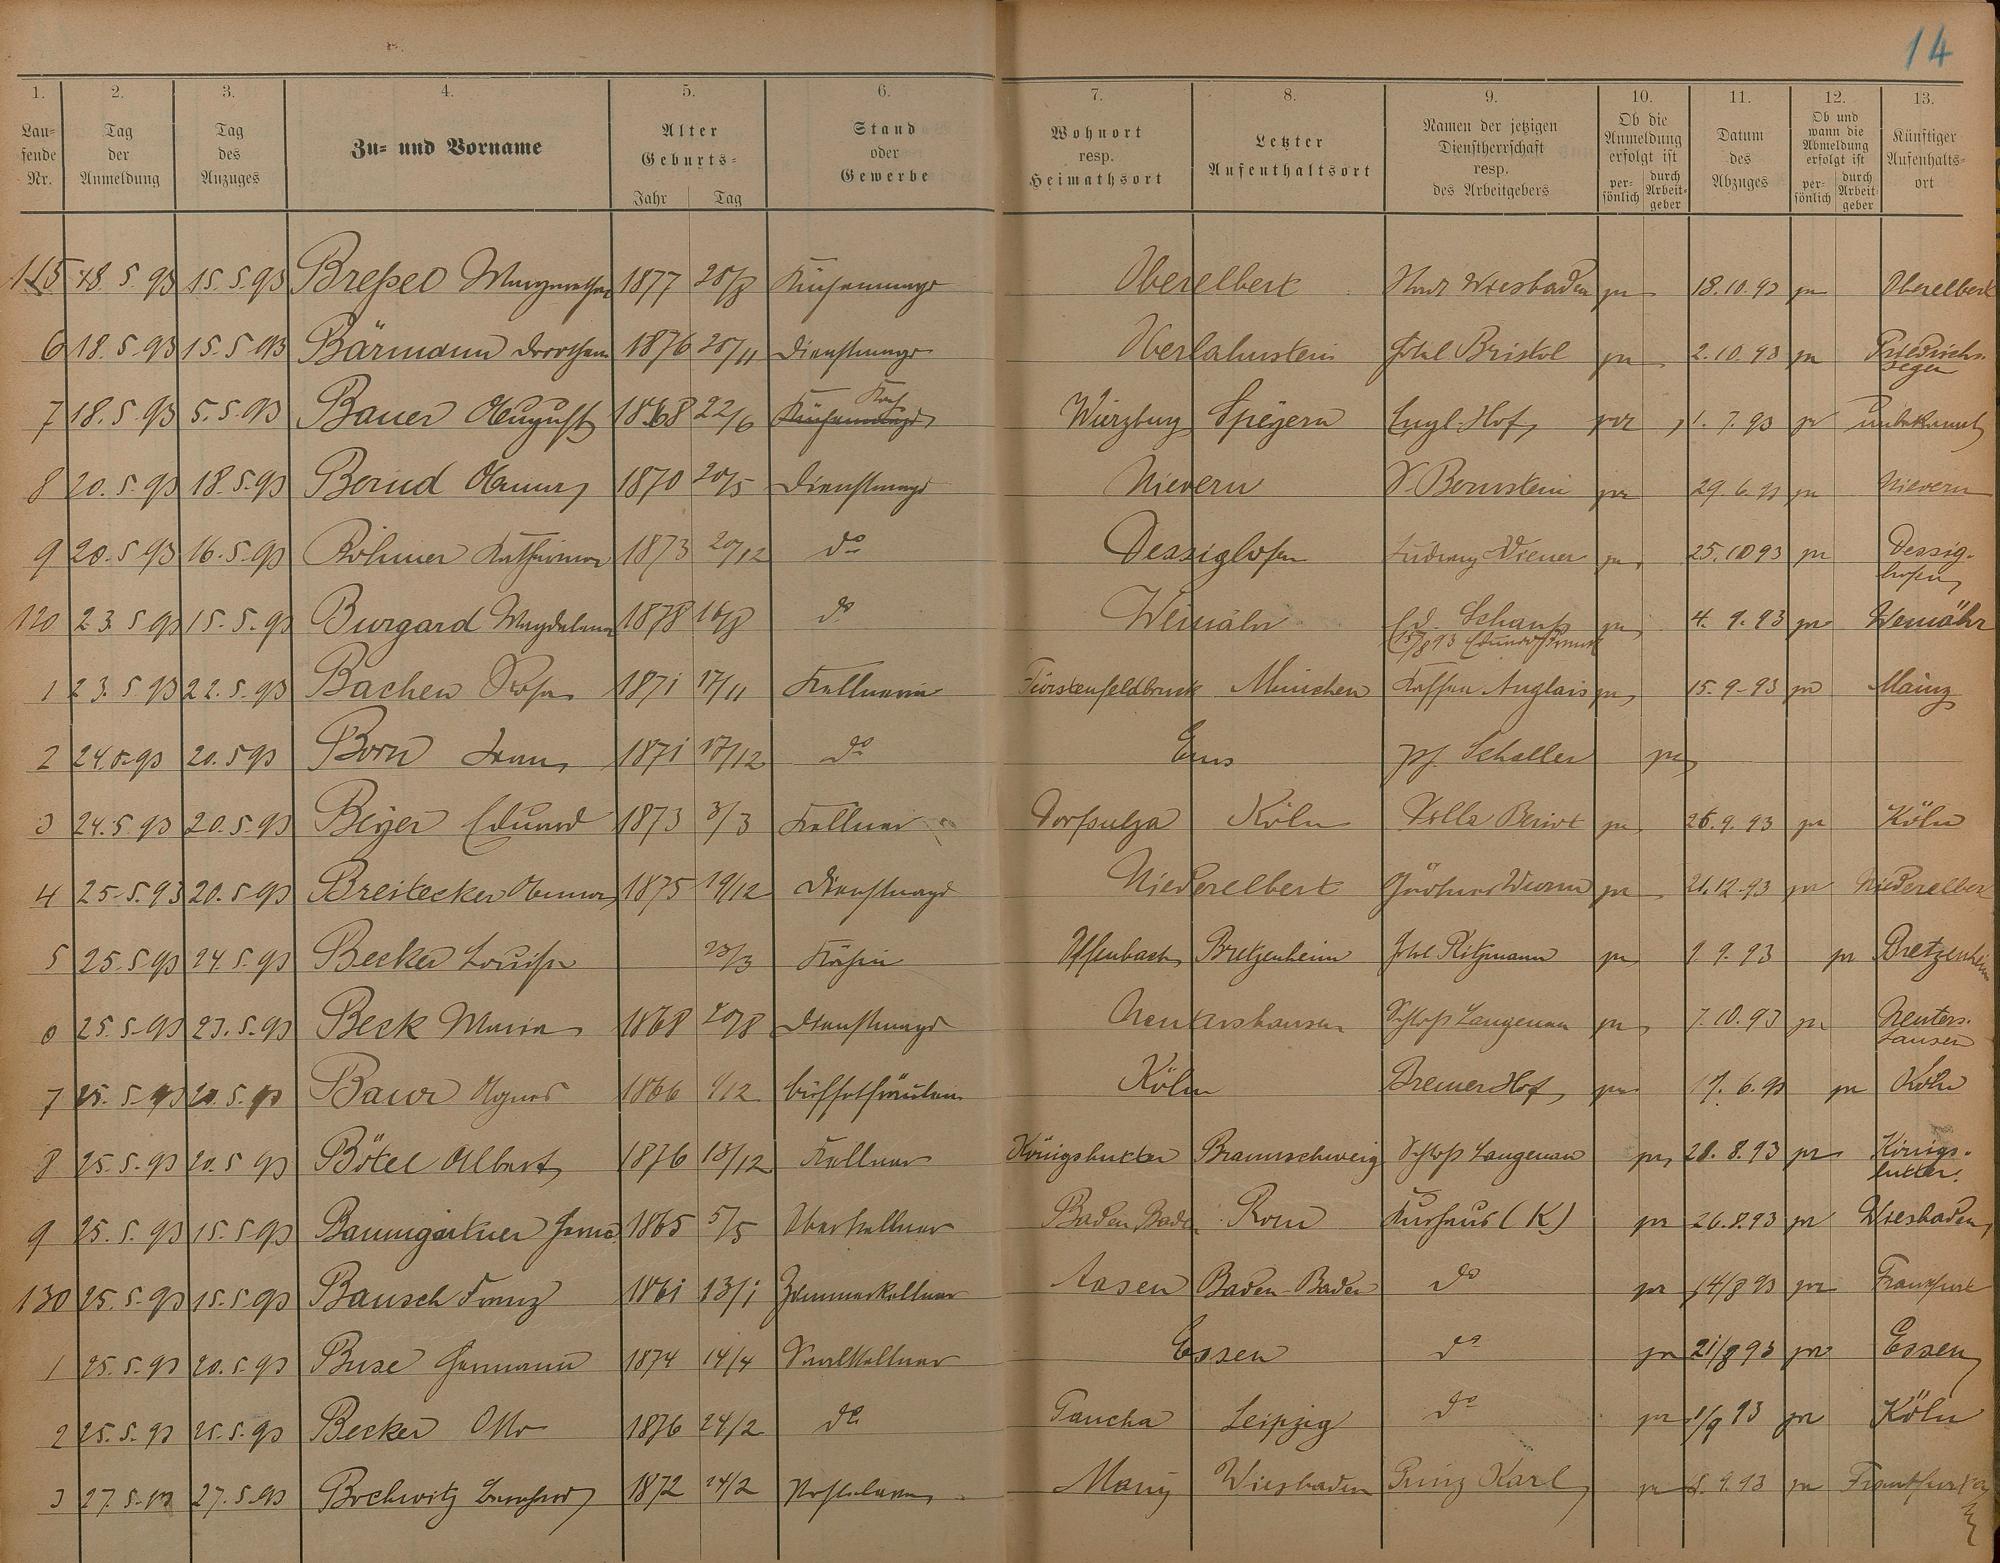 14
1. 2. 3. 4. 5. 6. 7. 8. 9. 10. 11. 12. 13.
Lau=
fende
Nr.
Tag
der
Anmeldung
Tag
des
Anzuges
Zu- und Vorname
Alter
Geburts=
Jahr Tag
Stand
oder
Gewerbe
Wohnort
resp.
Heimathsort
Letzter
Aufenthaltsort
Namen der jetzigen
Dienstherrschaft
resp.
des Arbeitgebers
Ob die
Anmeldung
erfolgt ist
per-
sönlich
durch
Arbeit-
geber
Datum
des
Abzuges
Ob und
wann die
Abmeldung
erfolgt ist
per-
sönlich
durch
Arbeit-
geber
Künftiger
Aufenthalts-
ort
115 18.5.93 15.5.93 Margaretha 1877 Küchenmagd Oberelbert Stadt Wiesbaden pr 18.10.93 pr Oberelbert
6 18.5.93 15.5.93 Bärmann Dorothea 1876 Dienstmagd Oberlahnstein Hotel Bristol pr 2.10.93 pr Friedrichs-
segen
Koch
7 18.5.93 5.5.93 Bauer August 1868 22/6 Küchenmagd Würzburg Speyern Engl. Hof pr 1.7.93 pr unbekannt
8 20.5.93 18.5.93 Bernd Anna 1870 20/5 Dienstmagd Nievern Bernstein pr 29.6.93 pr Nievern
9 20.5.93 16.5.93 Katharina 1873 20/12 do Dessighofen Ludwig Wiener pr 25.10.93 pr Dessig-
hofen
120 23.5.93 15.5.93 Burgard Magdalena 1878 16/8 do Weinähr Ed. pr 4.9.93 pr Weinähr
15/8 93
1 23.5.93 22.5.93 Bachen Rosa 1871 17/11 Kellnerin Fürstenfeldbruck München Kaffee Anglais pr 15.9.93 pr Mainz
2 24.5.93 20.5.93 Born 1871 17/12 do Ems Schaller pr
3 24.5.93 20.5.93 Beyer Eduard 1873 3/3 Kellner Dorfsulza Köln Villa pr 26.9.93 pr Köln
4 25.5.93 20.5.93 Breitecker Anna 1875 19/12 Dienstmagd Niederelbert Wurm pr 21.12.93 pr Niederelbert
5 25.5.93 24.5.93 Becker Louise 23/3 Köchin Offenbach Bretzenheim Hotel Ritzmann pr 9.93 pr Bretzenheim
6 25.5.93 23.5.93 Beck Maria 1868 20/8 Dienstmagd Neutershausen Schloß Langenau pr 7.10.93 pr Neuters-
hausen
7 25.5.93 20.5.93 Baur Agnes 1866 Büffetfräulein Köln Bremer Hof pr 17.6.93 pr Köln
8 25.5.93 20.5.93 Bötel Albert 1876 13/12 Kellner Königslutter Braunschweig Schloß Langenau pr 28.8.93 pr Königs-
lutter
9 25.5.93 15.5.93 Baumgärtner 1865 5/5 Oberkellner Baden Baden Rom Kurhaus (K) pr 26.8.93 pr Wiesbaden
130 25.5.93 15.5.93 Bausch Franz 1861 13/1 Zimmerkellner Aasen Baden-Baden do pr 14/8 93 pr Frankfurt
1 25.5.93 20.5.93 Buse Hermann 1874 14/4 Saalkellner Essen do pr 21/8 93 pr Essen
2 25.5.93 25.5.93 Becker Otto 1876 24/2 do Taucha Leipzig do pr 1/9 93 pr Köln
3 27.5.93 27.5.93 Bochwitz 1872 24/2 Wiesbaden Prinz Karl pr 9.93 pr Frankfurt